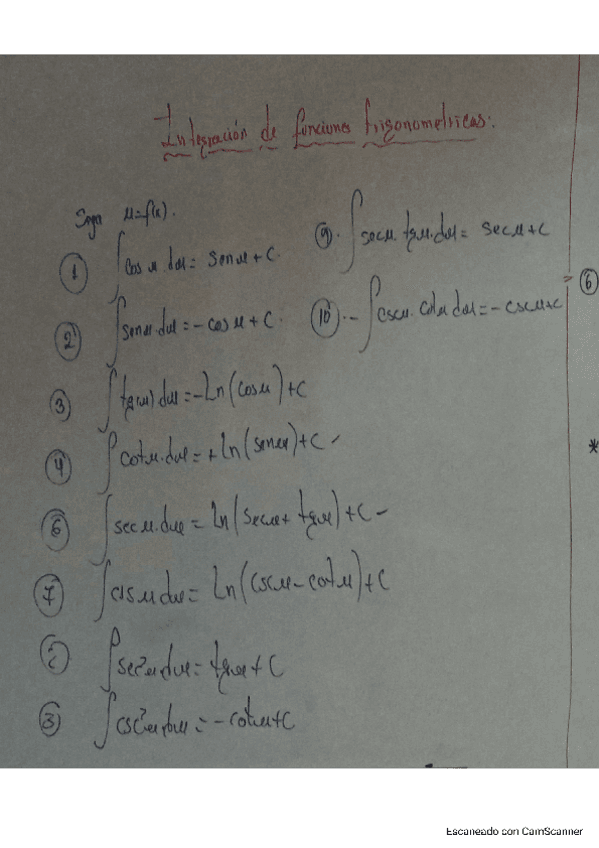 Integración de funciones trigonometricas:
Sea u=f(x).
① ∫cos u du = sen u + C.
② ∫sen u du = -cos u + C.
③ ∫tg(u) du = -Ln(cos u) + C
④ ∫cot u. du = + Ln(sen u) + C -
⑥ ∫sec u. du = Ln(sec u + tg u) + C -
⑦ ∫cs u du = Ln(csc u - cot u) + C
∫sec²u du = tg u + C
③ ∫csc²u du = -cot u + C
⑨. ∫sec u. tg u. du = sec u + C
⑩.- ∫csc u. cot u du = -csc u + C
⑥
*
Escaneado con CamScanner